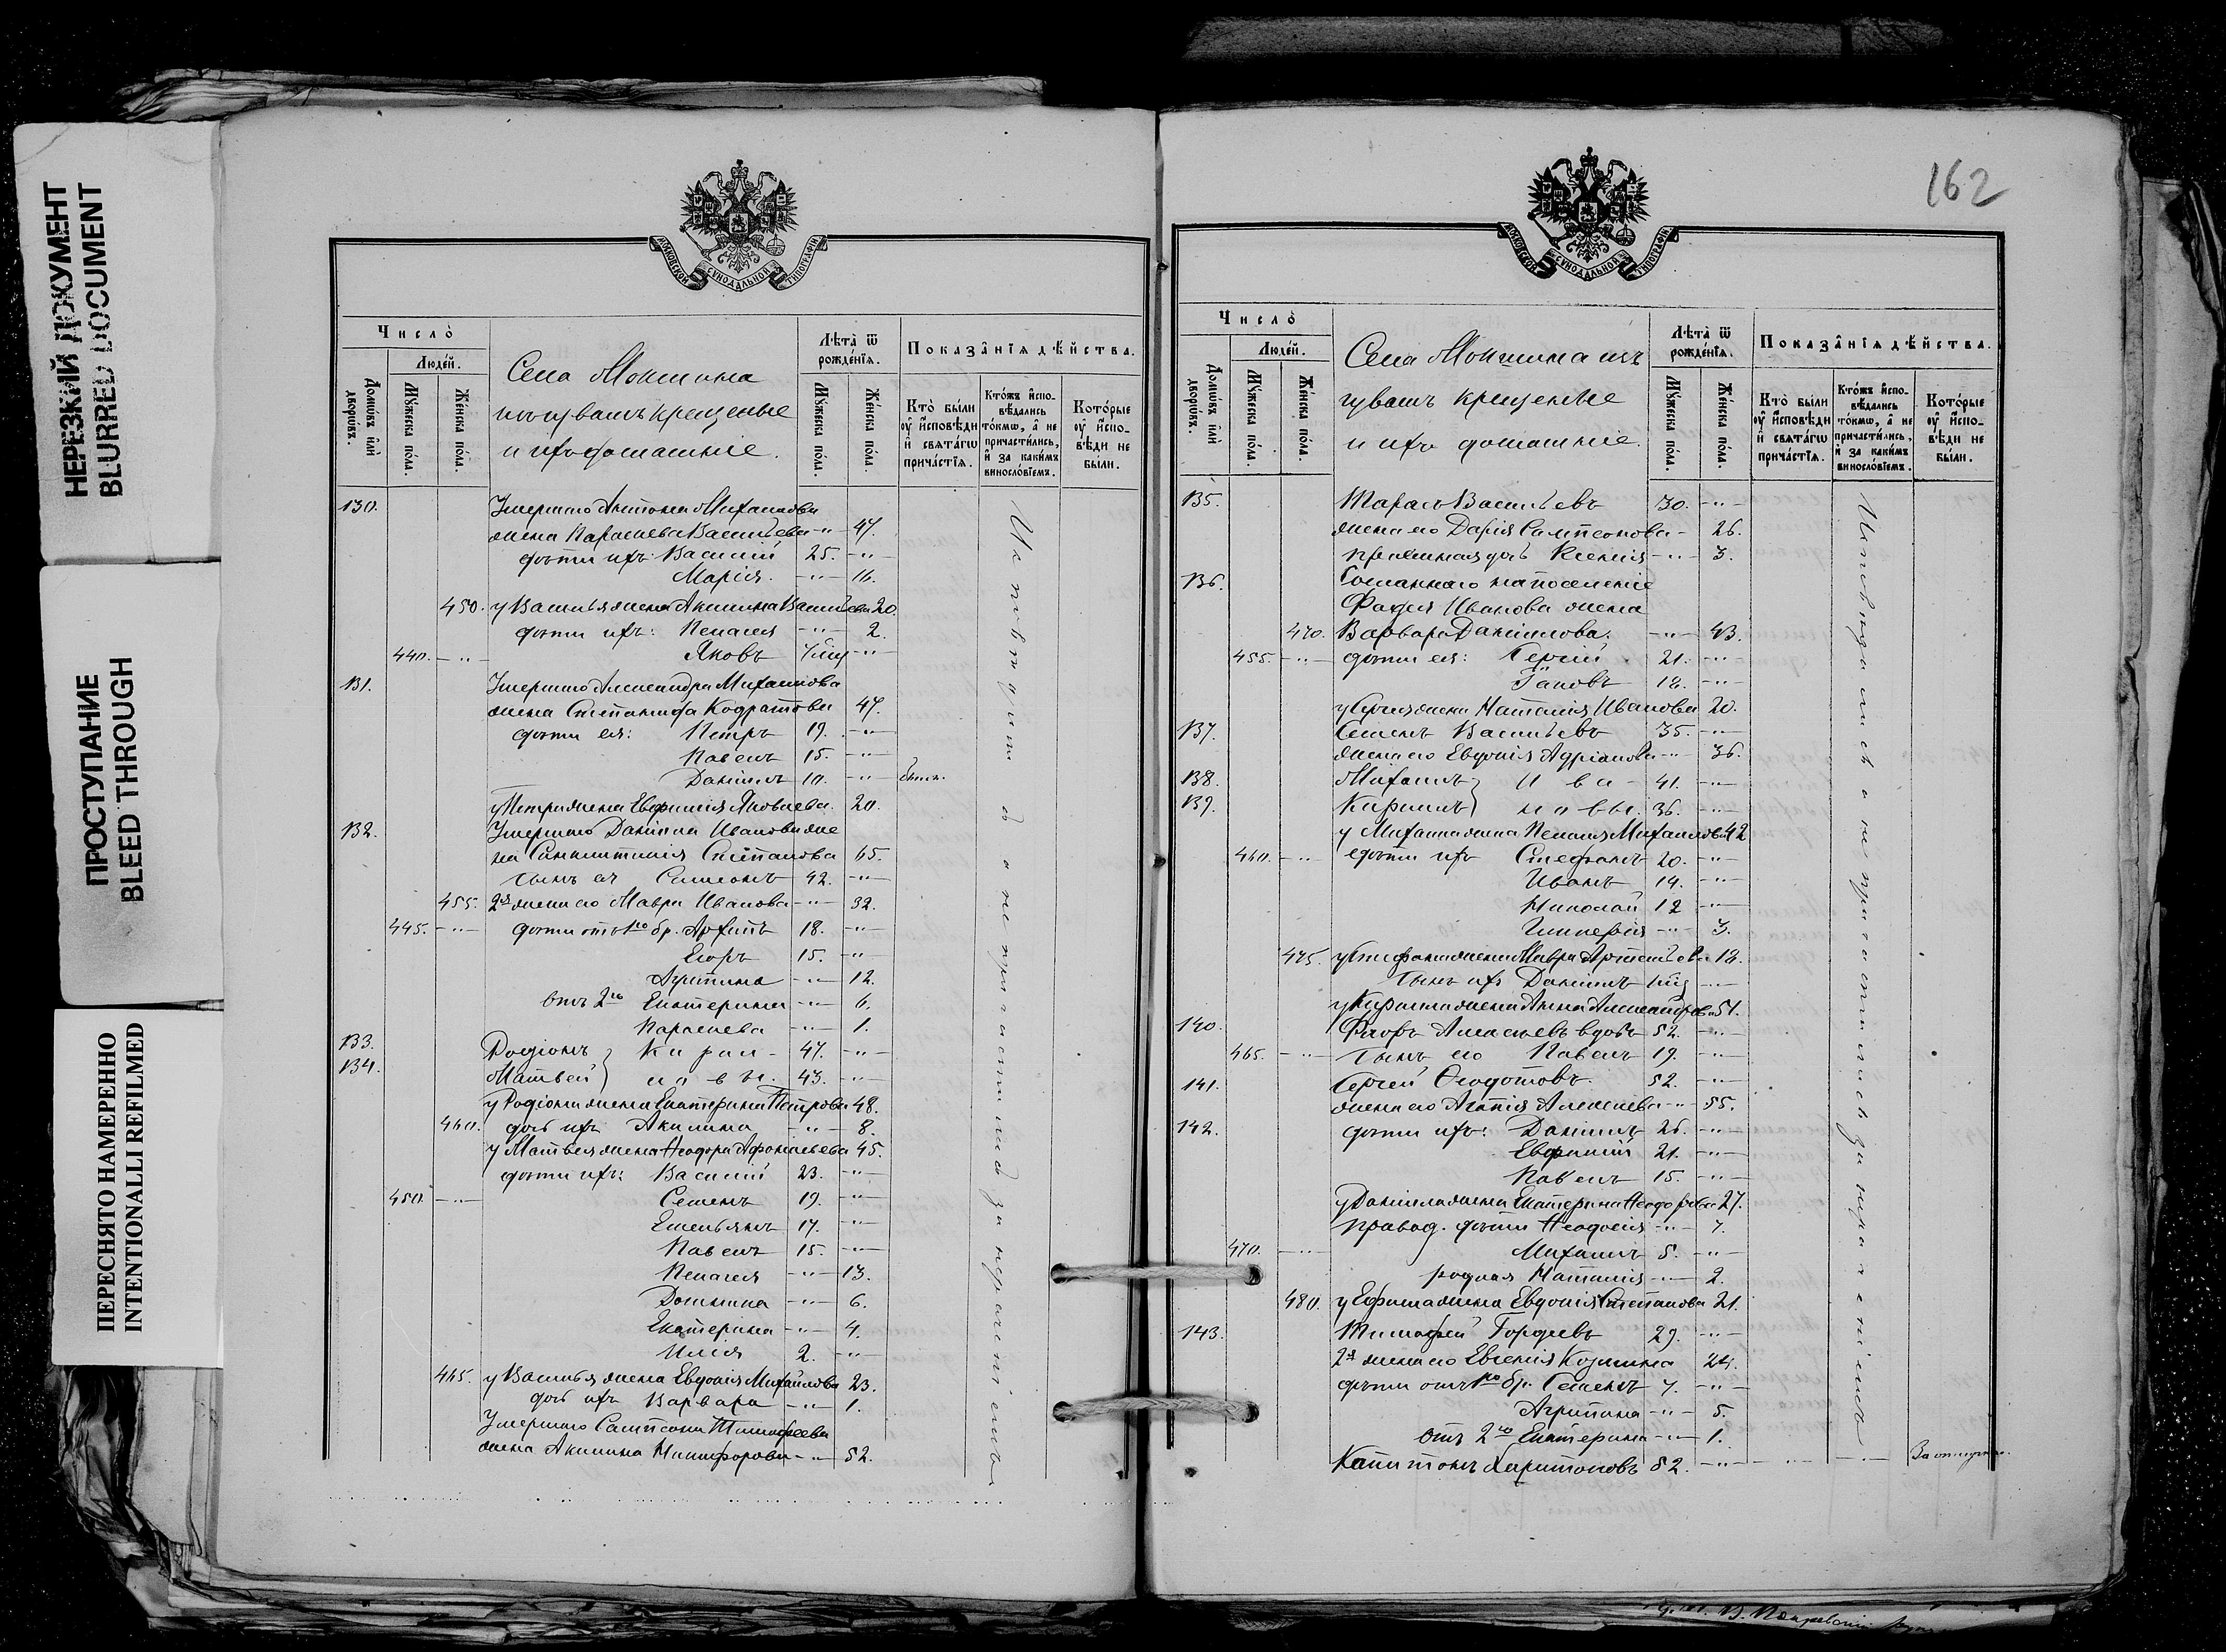 НЕРЕЗКИЙ ДОКУМЕНТ
BLURRED DOCUMENT
ПРОСТУПАНИЕ
BLEED THROUGH
ПЕРЕСНЯТО НАМЕРЕННО
INTENTIONALLI REFILMED
МОСКОВСКОЙ СѴНОДАЛЬНОЙ ТИПОГРАФІИ
Число̀
Домѡ́въ и҆лѝ дворѡ́въ.
Люде́й.
Мꙋ́жеска по́ла.
Же́нска по́ла.
Села Мокшина
чувашъ крещеные
и ихъ домашніе.
Лѣ́та ѿ рожде́нїѧ.
Мꙋ́жеска по́ла.
Же́нска по́ла.
Показа̂нїѧ дѣ́йства.
Кто̀ бы́ли оу҆ и҆́сповѣди и҆ свѧта́гѡ прича́стїѧ.
Кто́жъ и҆спо-вѣ́дались то́кмѡ, а҆ не причасти́лись, и҆ за каки́мъ виносло́вїемъ.
Кото́рые оу҆ и҆́спо-вѣди не бы́ли.
130. Умершаго Антона Михайлова
жена Параскева Васильева -"- 47.
дѣти ихъ: Василій 25. -"-
Марія. -"- 16.
450. у Василья жена Акилина Васильева 20.
дѣти ихъ: Пелагея -"- 2.
440. -"- Яковъ -"-
131. Умершаго Александра Михайлова
жена Степанида Кодратова 47.
дѣти ея: Петръ 19. -"-
Павелъ 15. -"-
Даніилъ 10. -"-
у Петра жена Евфимія Яковлева. 20.
132. Умершаго Даніила Иванова же
на Синклитикія Степанова 65.
сынъ ея Симеонъ 42. -"-
455. 2я жена его Мавра Иванова -"- 32.
445. -"- дѣти отъ 1го бр. Архипъ 18. -"-
Егоръ 15. -"-
Агрипина -"- 12.
отъ 2го Екатерина -"- 6.
Параскева -"- 1.
133. Родіонъ } Кирил- 47. -"-
134. Матвей } ловы. 43. -"-
у Родіона жена Екатерина Петрова 48.
460. дочь ихъ Акилина -"- 8.
у Матвея жена Ѳеодора Афонасьева 45.
дѣти ихъ: Василій 23. -"-
450. -"- Семенъ 19. -"-
Емельянъ 17. -"-
Павелъ 15. -"-
Пелагея -"- 13.
Домника -"- 6.
Екатерина -"- 4.
Илія 2. -"-
465. у Василья жена Евдокія Михайлова 23.
дочь ихъ Варвара -"- 1.
Умершаго Сампсона Тимофеева
жена Акилина Никифорова -"- 52.
162
МОСКОВСКОЙ СѴНОДАЛЬНОЙ ТИПОГРАФІИ
Число̀
Домѡ́въ и҆лѝ дворѡ́въ.
Люде́й.
Мꙋ́жеска по́ла.
Же́нска по́ла.
Села Мокшина изъ
чувашъ крещеные
и ихъ домашніе.
Лѣ́та ѿ рожде́нїѧ.
Мꙋ́жеска по́ла.
Же́нска по́ла.
Показа̂нїѧ дѣ́йства.
Кто̀ бы́ли оу҆ и҆́сповѣди и҆ свѧта́гѡ прича́стїѧ.
Кто́жъ и҆спо-вѣ́дались то́кмѡ, а҆ не причасти́лись, и҆ за каки́мъ виносло́вїемъ.
Кото́рые оу҆ и҆́спо-вѣди не бы́ли.
Исповѣдались а не причастились за
135. Тарасъ Васильевъ 30. -"-
жена его Дарія Сампсонова - 26.
дочь Ксенія -"- 3.
136. Сосланнаго на поселеніе
Иванова жена
470. Варвара Даніилова. -"- 43.
455. -"- дѣти ея: Сергій 21. -"-
Іаковъ 12. -"-
у Сергія жена Наталія Иванова 20.
137. Семенъ Васильевъ 35. -"-
жена его Евдокія Адріанова -"- 36.
138. Михаилъ } Ива- 41. -"-
139. Кирилъ } новы. 36. -"-
у Михаила жена Пелагія Михайлова 42
460. -"- дѣти ихъ Стефанъ 20. -"-
Иванъ 14. -"-
Николай 12 -"-
Гликерія -"- 3.
475. у Стефана жена Мавра Артемьева 18.
сынъ ихъ Даніилъ -"-
у Кирилла жена Анна Александрова 51.
140. Флоръ Алексѣевъ вдовъ 52. -"-
465. -"- сынъ его Павелъ 19. -"-
141. Сергей Ѳеодотовъ. 52. -"-
жена его Агапія Алексѣева -"- 55.
142. дѣти ихъ: Даніилъ 26. -"-
Евфимій 21. -"-
Павелъ 15. -"-
у Даніила жена Екатерина Ѳеодорова 27.
дѣти Ѳеодосія -"- 7.
470. -"- Михаилъ 5. -"-
родная Наталія -"- 2.
480. у Ефима жена Евдокія Степанова 21.
143. Тимофей Гордѣевъ 29. -"-
2я жена его Евгенія Козмина 24.
дѣти отъ 1го бр. Семенъ 7. -"-
Агрипина -"- 5.
отъ 2го Екатерина -"- 1.
Капитонъ Харитоновъ 52. -"- -"- -"- За отлучкою.